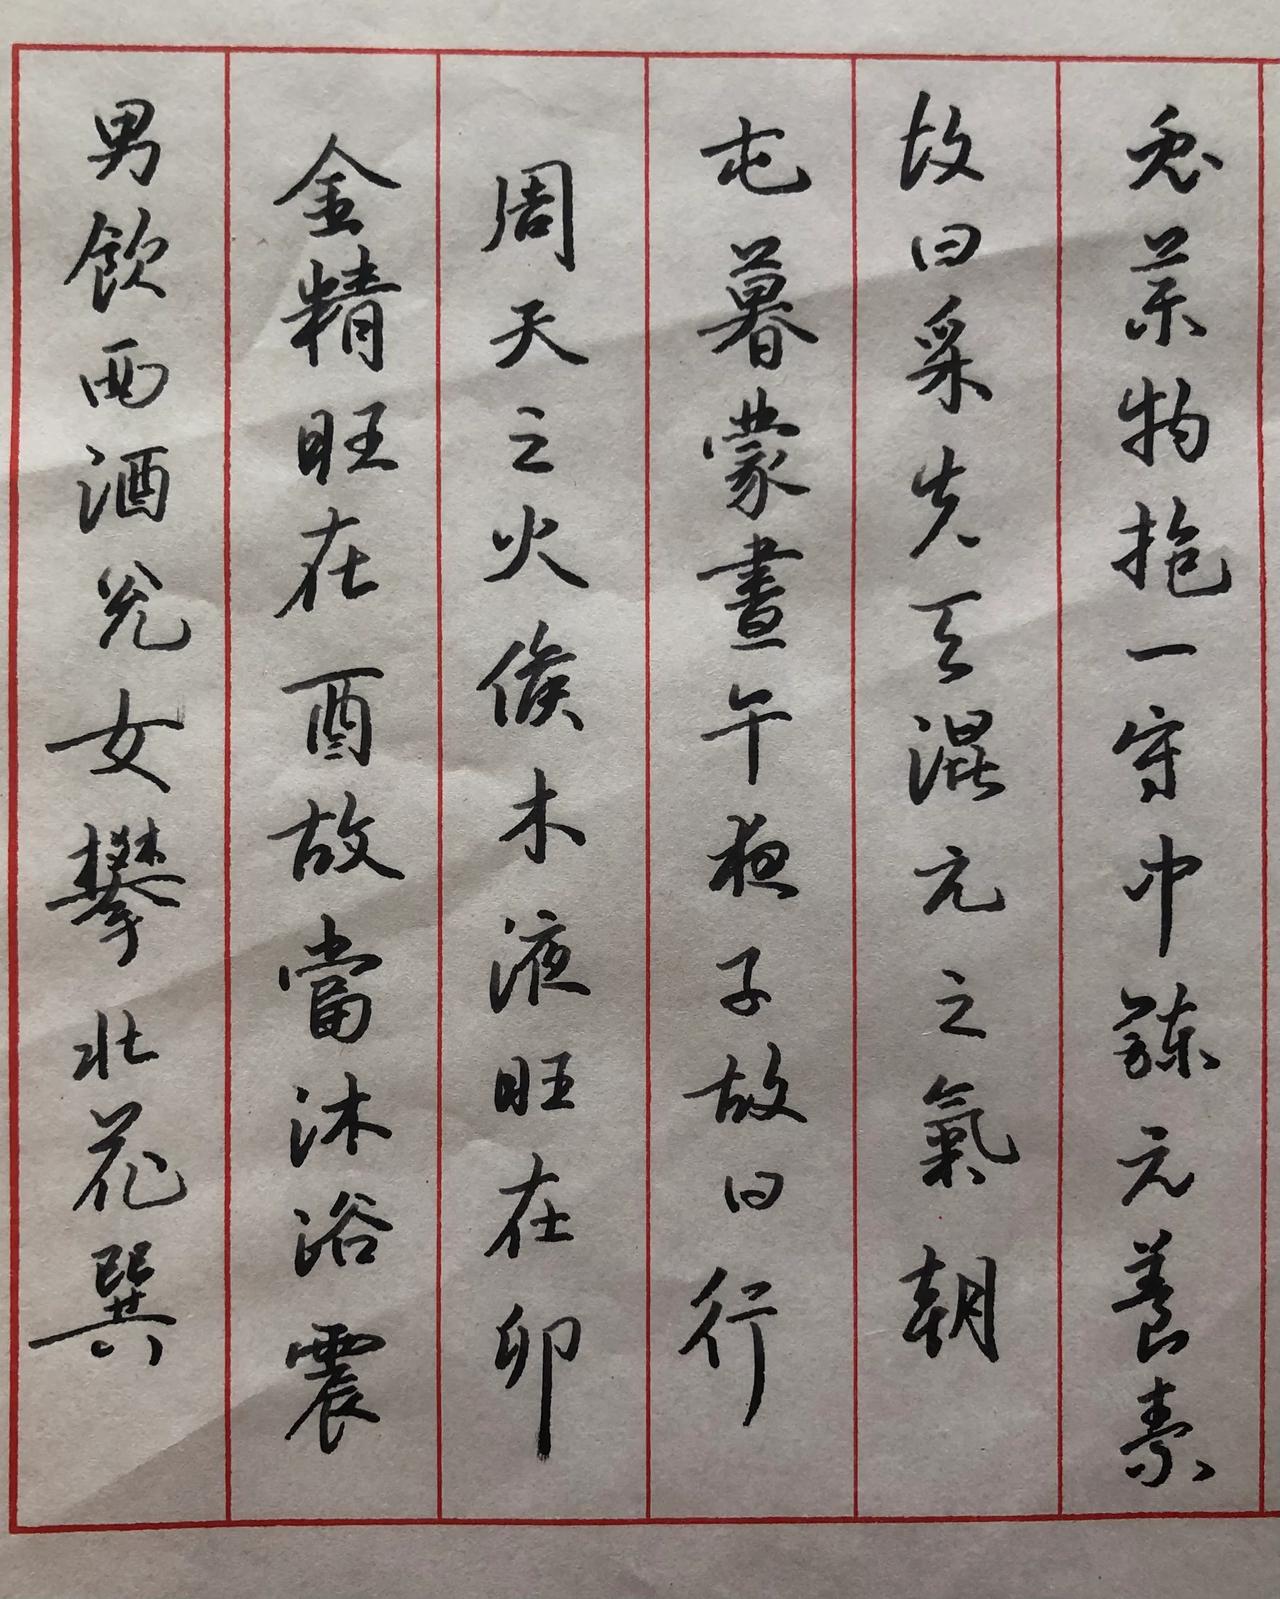 兔藥物抱一守中鍊元養素
故曰采先天混元之氣朝
屯暮蒙晝午夜子故曰行
周天之火候木液旺在卯
金精旺在酉故當沐浴震
男飲西酒兌女攀北花巽